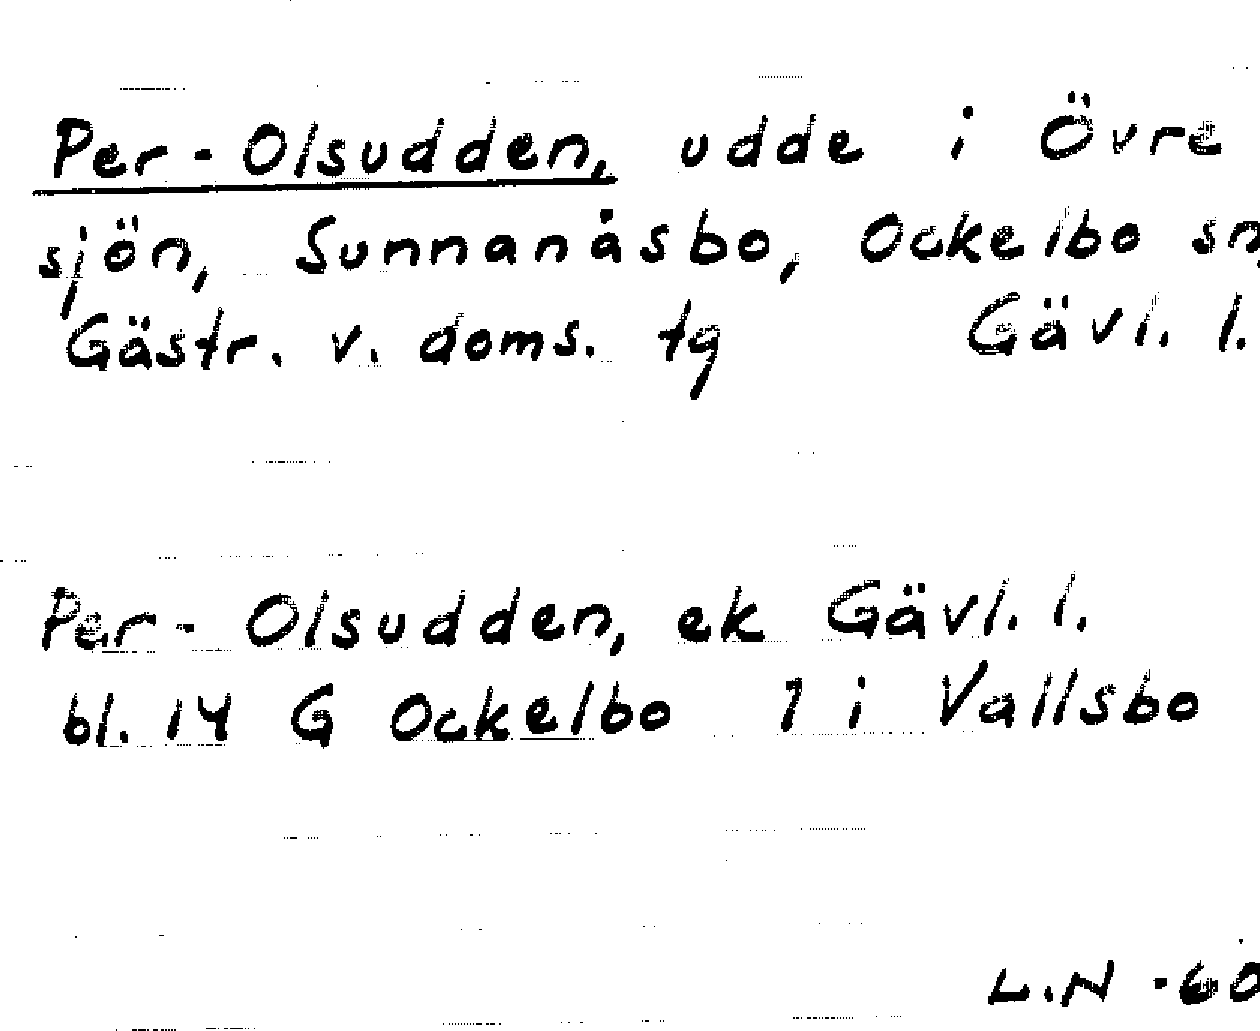 Per-Olsudden, udde i Övre
sjön, Sunnanåsbo, Ockelbo sn,
Gästr. v. doms. tg Gävl. l.
Per-Olsudden, ek Gävl. l.
bl. 14 G Ockelbo 1 i Vallsbo
L.N -60